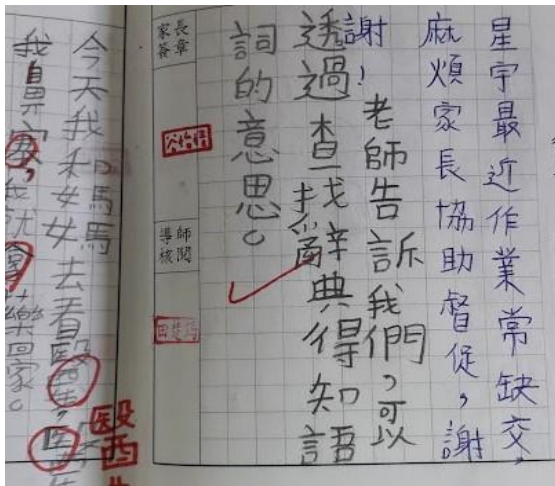 星宇最近作業常缺交,
麻煩家長協助督促,謝
謝!
老師告訴我們,可以
透過查找辭典得知語
詞的意思。
家長簽章
導師核閱
今天我和媽媽去看醫生,醫生
我鼻塞,我就拿藥回家。
醫